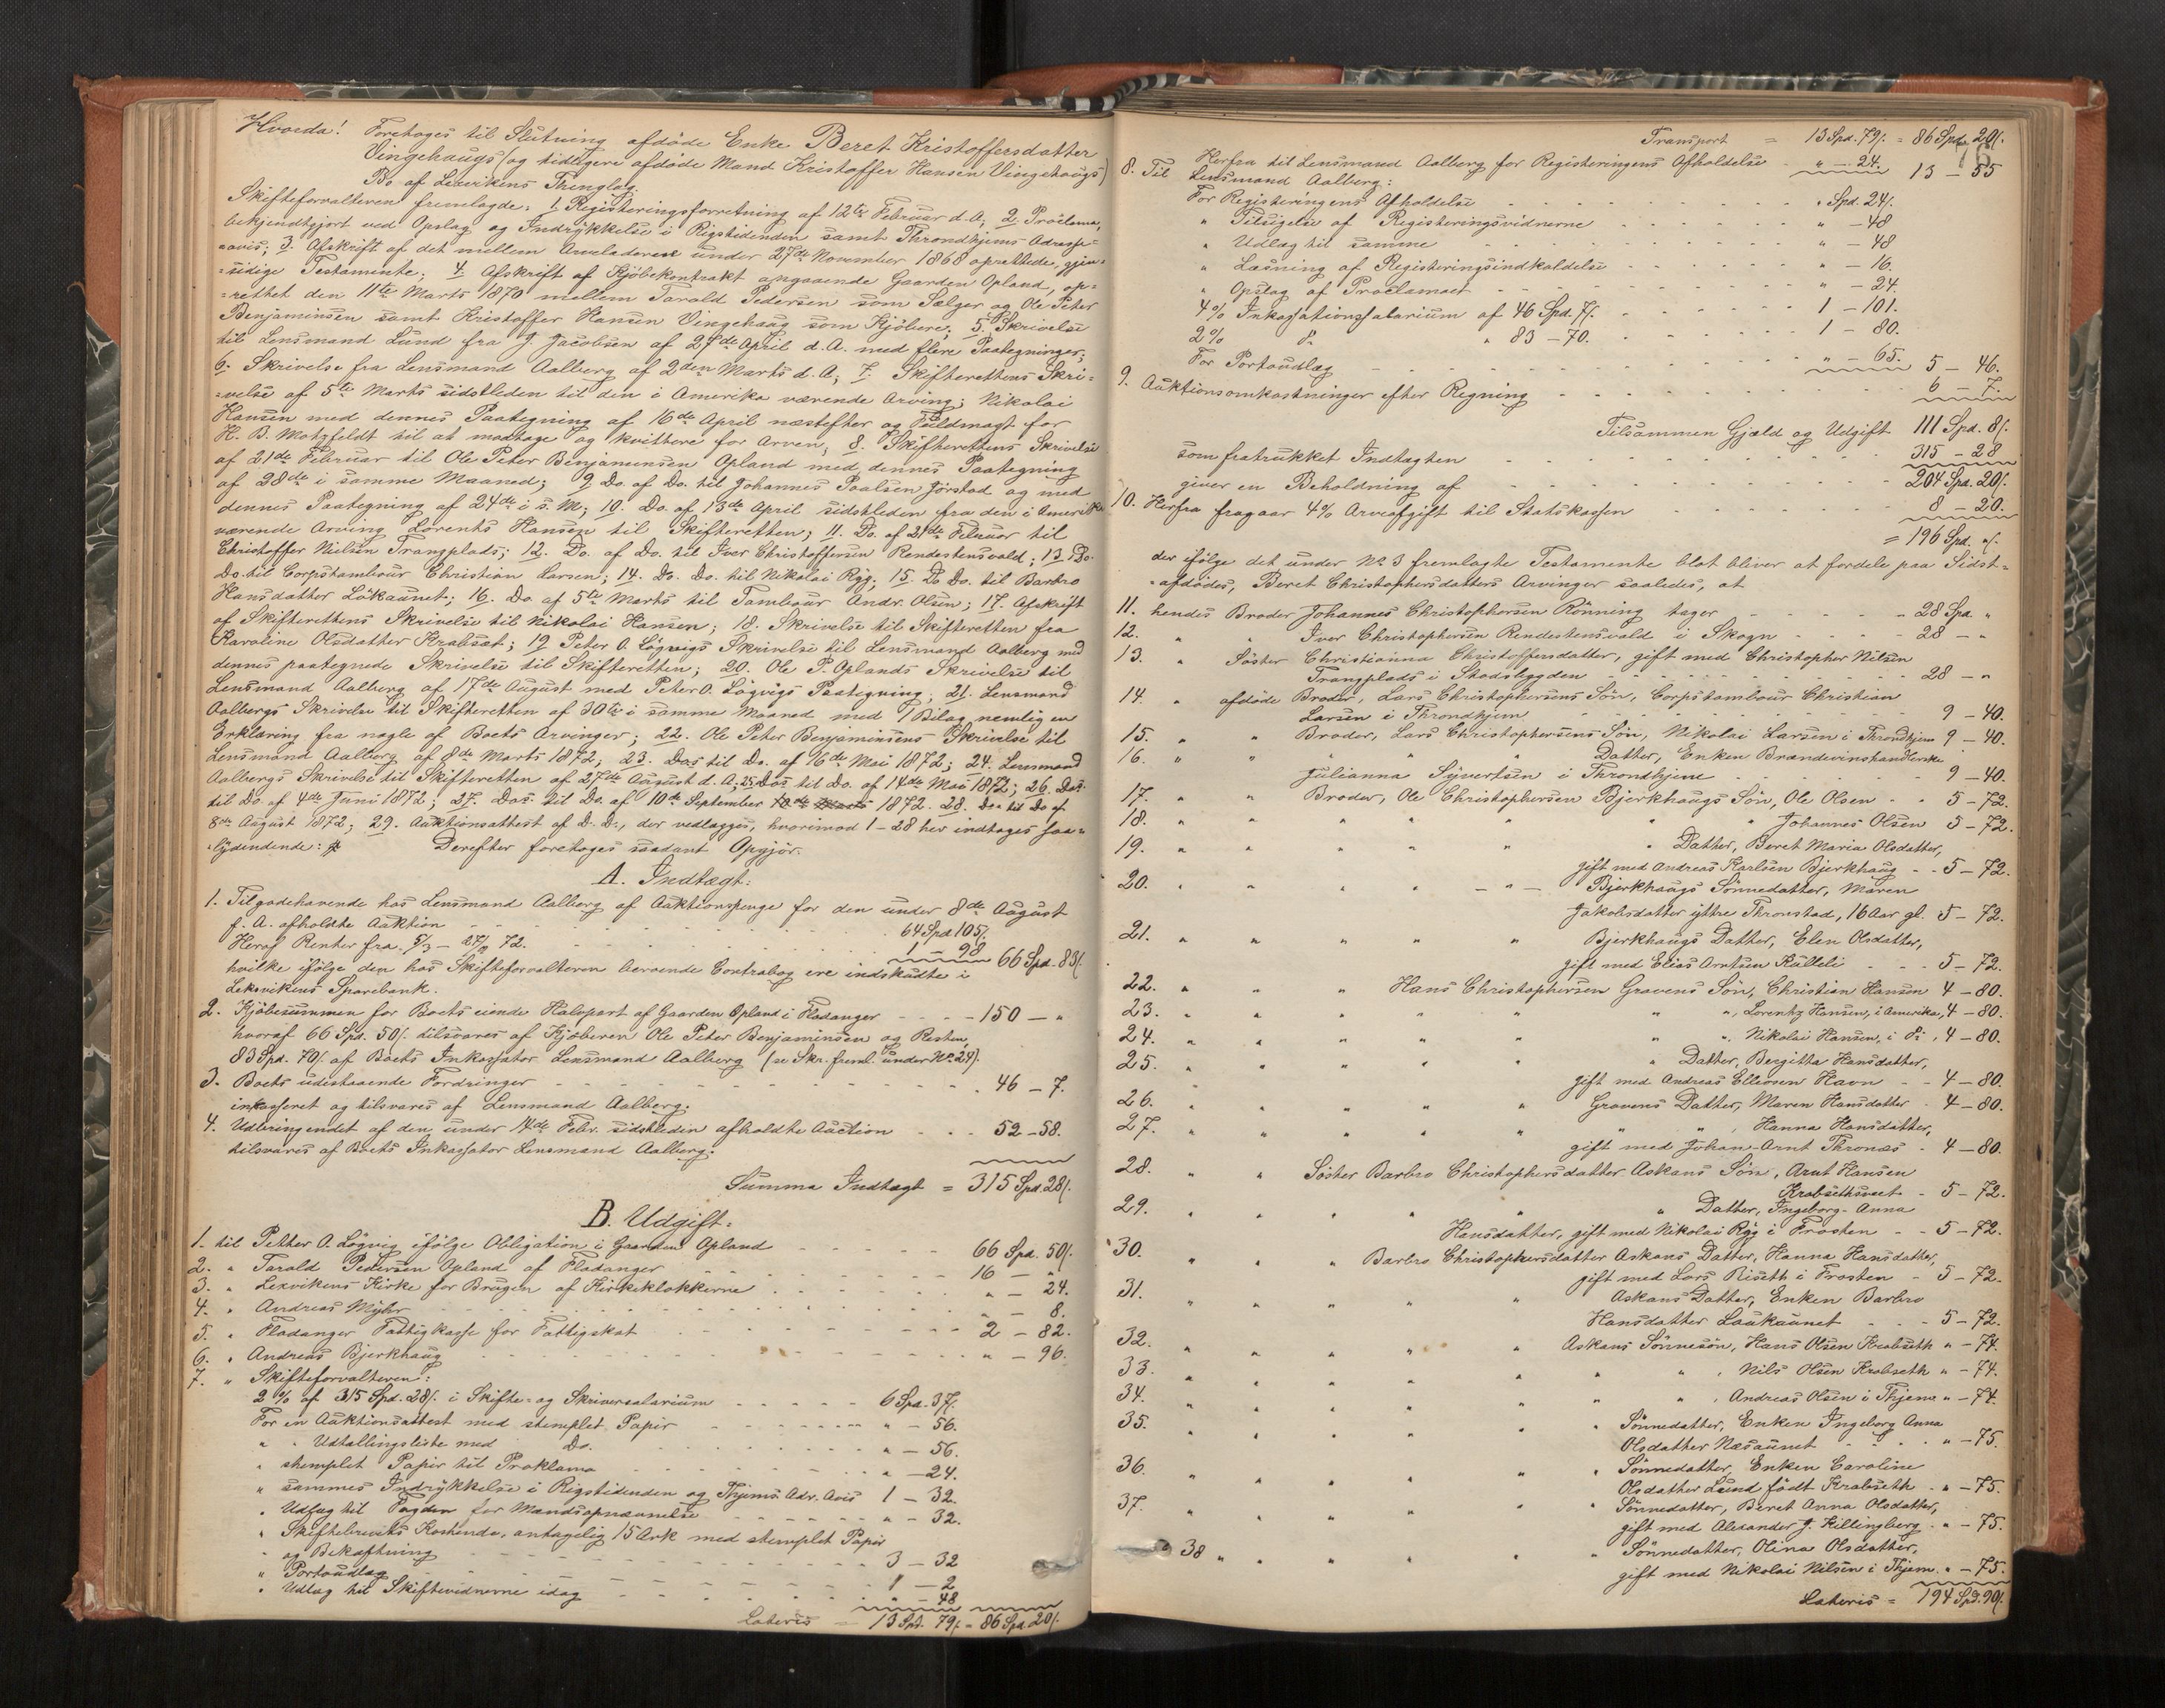 Hvorda! Foretoges til Slutning afdøde Enke Beret Kristoffersdatter
Vingehaugs (og tidligere afdøde Mand Kristoffer Hansen Vingehaugs)
Bo af Lexvikens Thinglag.
Skifteforvalteren fremlagde: 1. Registeringsforretning af 12te Februar d. A; 2. Proclama,
bekjendtgjort ved Opslag og Indrykkelse i Rigstidenden samt Throndhjems Adresse-
=avis; 3. Afskrift af det mellem Arveladeren under 27de November 1868 oprettede, gjen=
=sidige Testamente; 4. Afskrift af Kjøbekontrakt angaaende Gaarden Opland, op=
=rettet den 11te Marts 1870 mellem Tarald Pedersen som Sælger og Ole Peter
Benjaminsen samt Kristoffer Hansen Vingehaug som Kjøbere; 5. Skrivelse
til Lensmand Lund fra J. Jacobsen af 27de April d. A. med flere Paategninger;
6. Skrivelse fra Lensmand Aalberg af 2den Marts d. A; 7. Skifterettens Skri=
=velse af 5te Marts sidstleden til den i Amerika værende Arving; Nikolai
Hansen med dennes Paategning af 16de April næstefter og Fuldmagt for
H. B. Motzfeldt til at modtage og kvittere for Arven; 8. Skifterettens Skrivelse
af 21de Februar til Ole Peter Benjaminsen Opland med dennes Paategning
af 28de i samme Maaned; 9. Do. af Do. til Johannes Paalsen Jørstad og med
dennes Paategning af 24de i s. M; 10. Do. af 13de April sidstleden fra den i Amerika
værende Arving Lorents Hansen til Skifteretten; 11. Do. af 21de Februar til
Christoffer Nielsen Trangplads; 12. Do. af Do. til Iver Christoffersen Rendestensvald; 13. Do.
Do. til Corpstambour Christian Larsen; 14. Do. Do. til Nikolai Ryg; 15. Do Do. til Barbro
Hansdatter Lökaunet; 16. Do. af 5te Marts til Tambour Andr. Olsen; 17. Afskrift
af Skifterettens Skrivelse til Nikolai Hansen; 18. Skrivelse til Skifteretten fra
Karoline Olsdatter Krabsæt; 19 Peter O. Løgvigs Skrivelse til Lensmand Aalberg med
dennes paategnede Skrivelse til Skifteretten; 20. Ole P. Oplands Skrivelse til
Lensmand Aalberg af 17de August med Peter O. Løgvigs Paategning; 21. Lensmand
Aalbergs Skrivelse til Skifteretten af 30te i samme Maaned med 1 Bilag nemlig en
Erklæring fra nogle af Boets Arvinger; 22. Ole Peter Benjaminsens Skrivelse til
Lensmand Aalberg af 8de Marts 1872; 23. Do's til Do. af 16de Mai 1872; 24. Lensmand
Aalbergs Skrivelse til Skifteretten af 27de August d. A; 25. Do's til Do. af 14de Mai 1872; 26. Do's
til Do. af 4de Juni 1872; 27. Do's til Do. af 10de September 1872. 28. Do's til Do af
8de August 1872; 29. Auktionsattest af D. D., der vedlægges, hvorimod 1-28 her indtages saa=
=lydendende:
Derefter foretoges saadant Opgjør.
A. Indtægt:
1. Tilgodehavende hos Lensmand Aalberg af Auktionspenge for den under 8de August
f. A. afholdte Auktion - - - 64 Spd 105/.
Heraf Renter fra 5/3 - 27/9 72. - - - 1 - 98 66 Spd. 83/.
hvilke ifølge den hos Skifteforvalteren beroende Contrabog ere indskudte i
Leksvikens Sparebank.
2. Kjøbesummen for Boets eiende Halvpart af Gaarden Opland i Fladanger - - - 150 - "
hvoraf 66 Spd. 50/. tilsvares af Kjøberen Ole Peter Benjaminsen og Resten,
83 Spd. 70/. af Boets Inkassator Lensmand Aalberg (se Skr. freml. under No. 24).
3. Boets udestaaende Fordringer - - - 46 - 7.
inkasseret og tilsvares af Lensmand Aalberg.
4. Udbringendet af den under 14de Febr. sidstleden afholdte Auction - - - 52 - 58.
tilsvares af Boets Inkassator Lensmand Aalberg.
Summa Indtægt = 315 Spd. 28/.
B. Udgift:
1. til Petter O. Løgvig ifølge Obligation i Gaarden Opland - - - 66 Spd. 50/.
2. " Tarald Pedersen Opland af Fladanger - - - 16 - "
3. " Lexvikens Kirke for Brugen af Kirkeklokkerne - - - " - 24.
4. " Andreas Myhr - - - " - 8.
5. " Fladanger Fattigkasse for Fattigskat - - - 2 - 82.
6. " Andreas Bjerkhaug - - - " - 96.
7. " Skifteforvalteren:
2 % af 315 Spd. 28/. i Skifte- og Skriversalarium - - - 6 Spd. 37/.
For en Auktionsattest med stemplet Papir - - - " - 56.
" " Udtallingsliste med Do. - - - " - 56.
" stemplet Papir til Proklama - - - " - 24.
" sammes Indrykkelse i Rigstidenden og Thjems Adr. Avis 1 - 32.
" Udlæg til Fogden for Mandsopnævnelse - - - " - 32.
" Skiftebrevets Kostende, antagelig 15 Ark med stemplet Papir
og Bekræftning - - - 3 - 32
" Portoudlæg - - - 1 - 2
" Udlæg til Skiftevidnerne idag - - - " - 48
Lateris = 13 Spd. 79/. = 86 Spd. 20/.
Transport = 13 Spd. 79/. = 86 Spd. 20/.
Herfra til Lensmand Aalberg for Registeringens Afholdelse " - 24. 13 - 55
8. Til Lensmand Aalberg:
For Registeringens Afholdelse - - - " Spd. 24/.
" Tilsigelse af Registeringsvidnerne - - - " - 48
" Udlæg til samme - - - " - 48
" Læsning af Registeringsindkaldelse - - - " - 16.
" Opslag af Proclamaet - - - " - 24.
4 % Inkassationssalarium af 46 Spd. 7/. - - - 1 - 101.
2 % Do " 83 - 70. - - - 1 - 80.
For Portoudlæg - - - " - 65. 5 - 46.
9. Auktionsomkostninger efter Regning - - - 6 - 7.
Tilsammen Gjæld og Udgift 111 Spd. 8/.
som fratrukket Indtægten - - - 315 - 28
giver en Beholdning af - - - 204 Spd. 20/.
10. Herfra fragaar 4 % Arveafgift til Statskassen - - - 8 - 20.
= 196 Spd. "/.
der ifølge det under No 3 fremlagte Testamente blot bliver at fordele paa Sidst=
=afdødes, Beret Christophersdatters Arvinger saaledes, at
11. hendes Broder Johannes Christophersen Rönning tager - - - 28 Spd. "
12. " " Iver Christophersen Rendestensvald i Skogn - - - 28 - "
13. " Søster Christianna Christoffersdatter, gift med Christopher Nilsen
Trangplads i Stadsbygden - - - 28 - "
14. " afdøde Broder, Lars Christophersens Søn, Corpstambour Christian
Larsen i Throndhjem - - - 9 - 40.
15. " " Broder, Lars Christophersens Søn, Nikolai Larsen i Throndhjem 9 - 40.
16. " " " " " Datter, Enken Brændevinshandlerske
Julianna Syvertsen i Throndhjem - - - 9 - 40.
17. " " Broder, Ole Christophersen Bjerkhaugs Søn, Ole Olsen - - 5 - 72.
18. " " " " " " Johannes Olsen 5 - 72.
19. " " " " " " Datter, Beret Maria Olsdatter,
gift med Andreas Karlsen Bjerkhaug - - 5 - 72.
20. " " " " - " - Bjerkhaugs Sønnedatter, Maren
Jakobsdatter yttre Thronstad, 16 Aar gl. 5 - 72.
21. " " " " " Bjerkhaugs Datter, Elen Olsdatter,
gift med Elias Arntsen Kalleli - - - 5 - 72.
22. " " " Hans Christophersen Gravens Søn, Christian Hansen 4 - 80.
23. " " " " " " ", Lorentz Hansen, i Amerika, 4 - 80.
24. " " " " " " ", Nikolai Hansen, i Do, 4 - 80.
25. " " " " " " Datter, Bergitta Hansdatter,
gift med Andreas Ellevsen Havn - - 4 - 80.
26. " " " " " Gravens Datter, Maren Hansdatter - 4 - 80.
27. " " " " " " ", Hanna Hansdatter,
gift med Johan Arnt Thronæs - 4 - 80.
28. " " Søster Barbro Christophersdatter Askans Søn, Arnt Hansen
Krabsethsveet - 5 - 72.
29. " " " " " " Datter, Ingeborg-Anna
Hansdatter, gift med Nikolai Ryg i Frosten - - 5 - 72.
30. " " " Barbro Christophersdatter Askans Datter, Hanna Hansdatter,
gift med Lars Riseth i Frosten - 5 - 72.
31. " " " " " Askans Datter, Enken Barbro
Hansdatter Laukaunet - - - 5 - 72.
32. " " " " " Askans Sønnesøn, Hans Olsen Krabseth " - 74.
33. " " " " " " ", Nils Olsen Krabseth " - 74.
34. " " " " " " ", Andreas Olsen i Thjem " - 74.
35. " " " " " " Sønnedatter, Enken Ingeborg Anna
Olsdatter Næsaunet - - - " - 75.
36. " " " " " " Sønnedatter, Enken Caroline
Olsdatter Lund født Krabseth - " - 75.
37. " " " " " " Sønnedatter, Beret Anna Olsdatter,
gift med Alexander J. Killingberg - " - 75.
38 " " " " " " Sønnedatter, Olina Olsdatter,
gift med Nikolai Nilsen i Thjem. " - 75.
Lateris = 194 Spd. 90/.